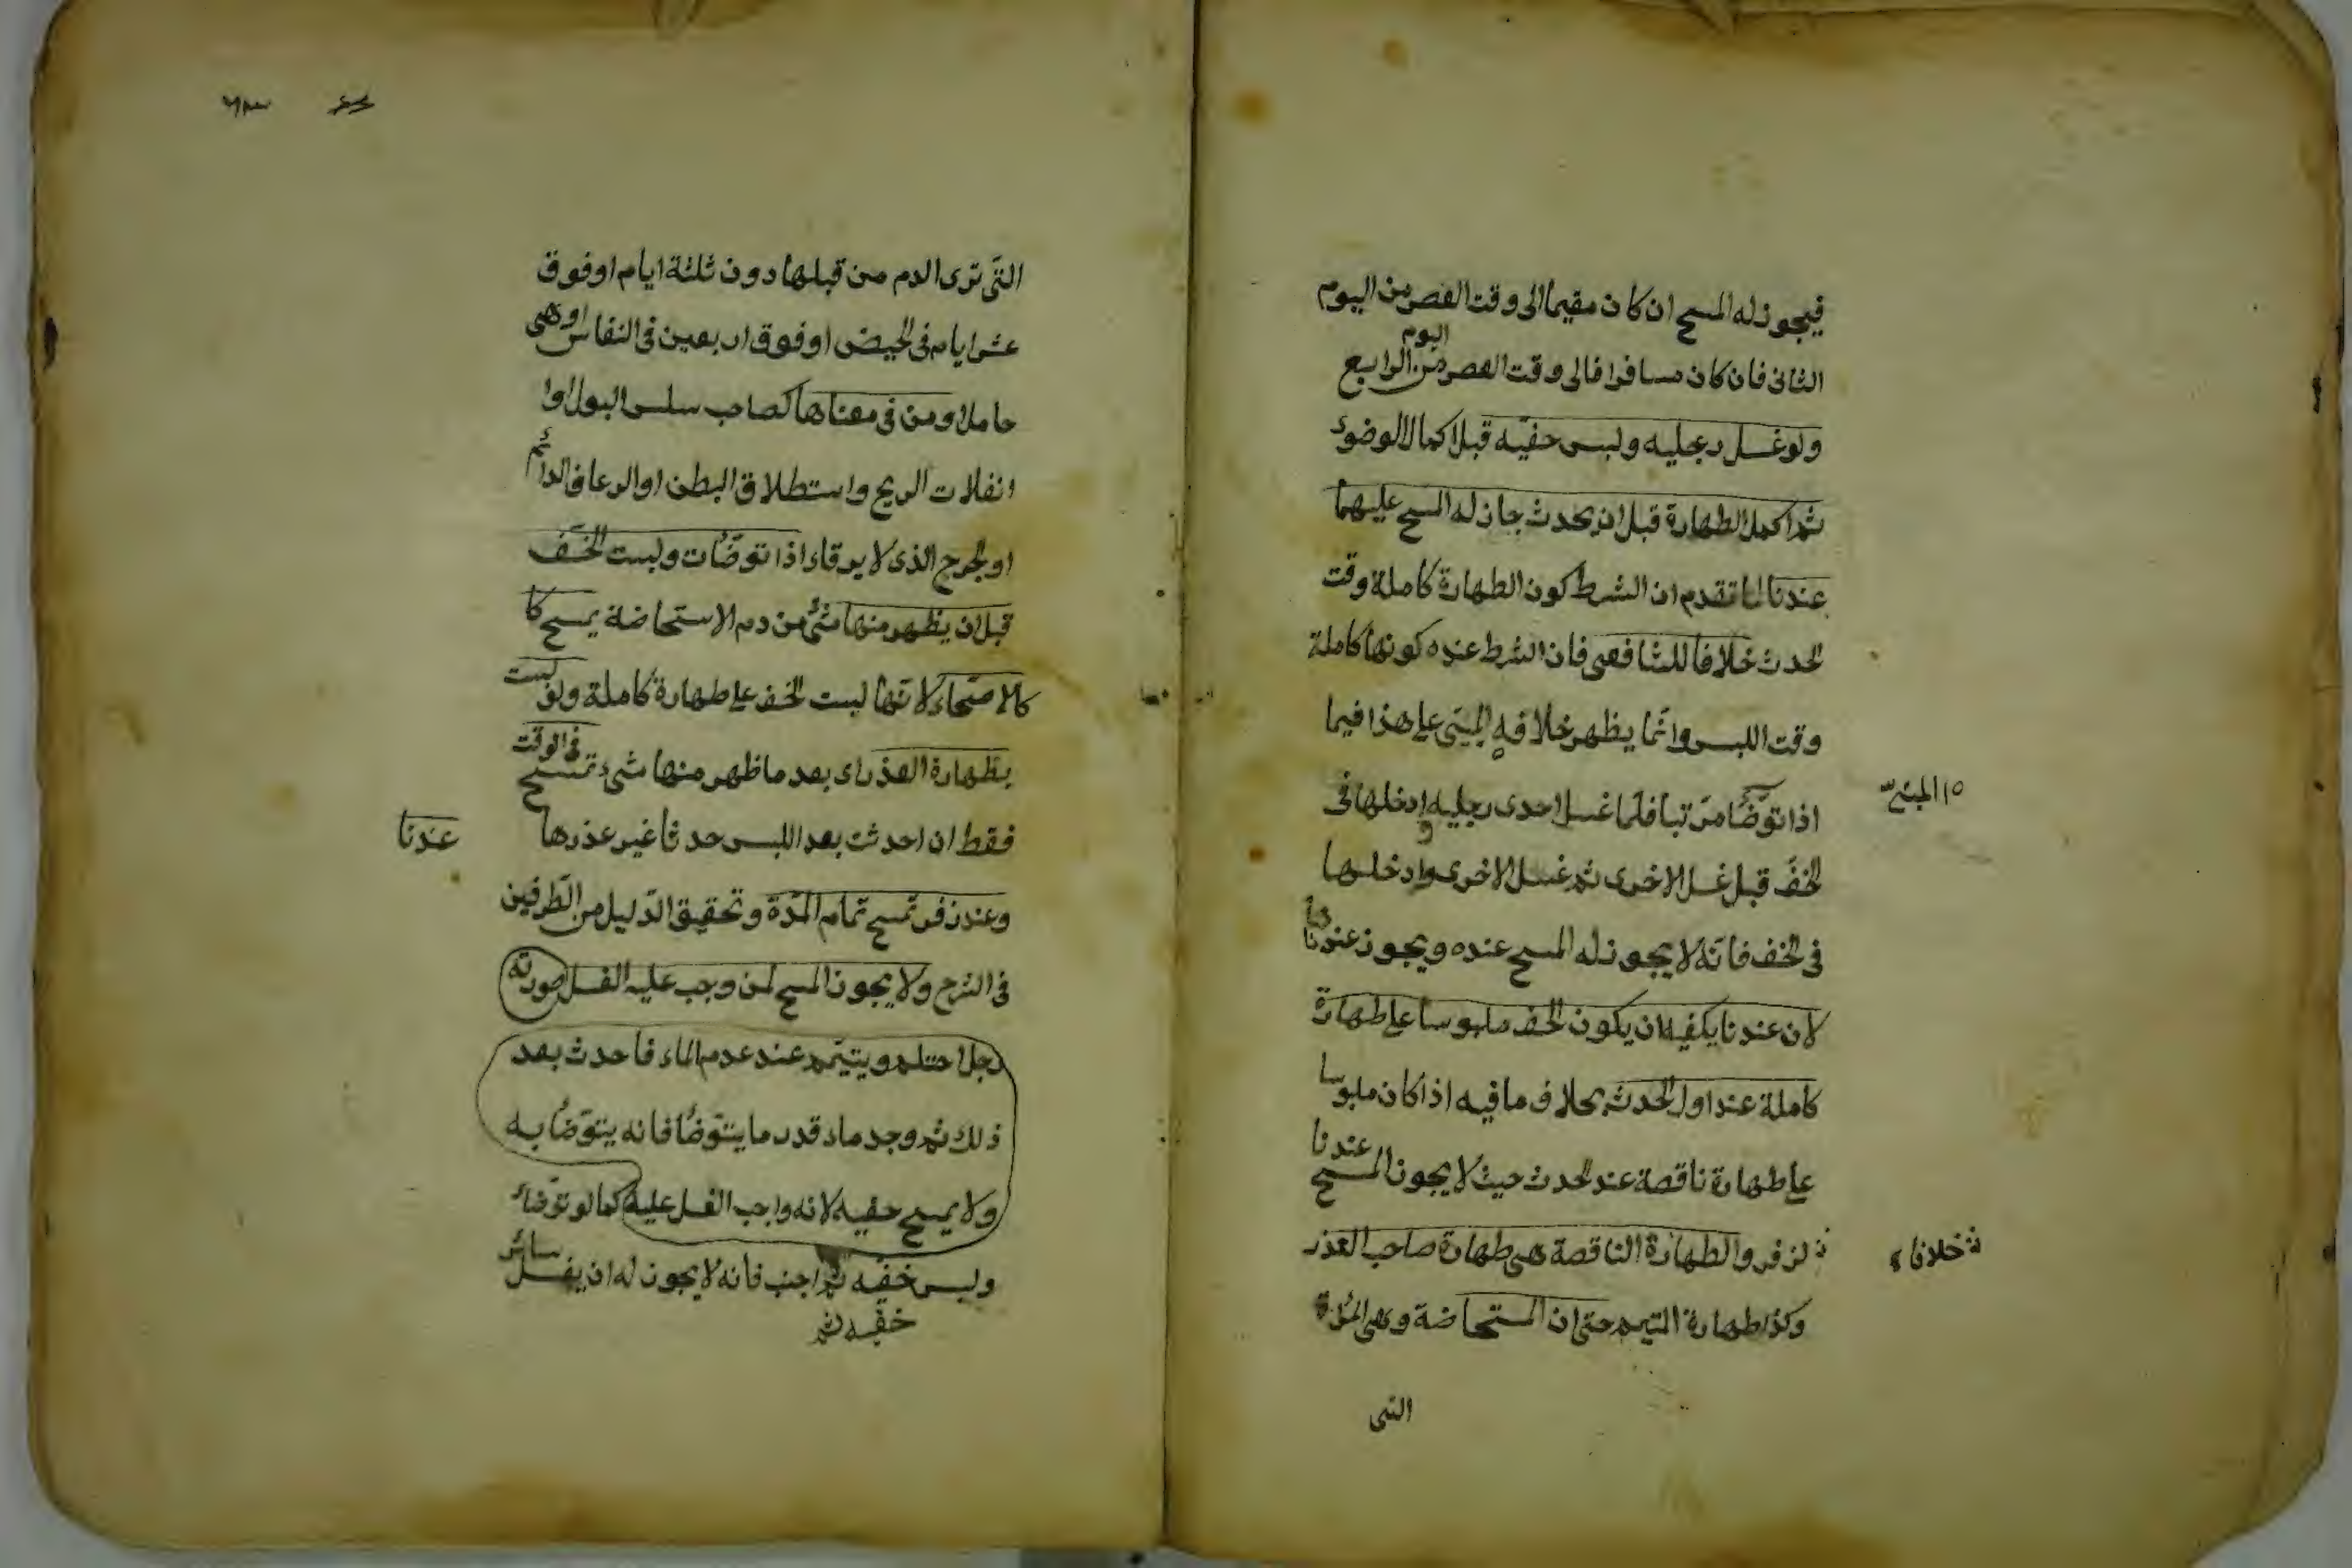 فيجوز له المسح ان كان مقيما الى وقت العصر من اليوم
الثانى فان كان مسافرا فالى وقت العصر من اليوم الرابع
ولو غسل رجليه ولبس خفيه قبل اكمال الوضوء
ثم اكمل الطهارة قبل ان يحدث جاز له المسح عليهما
عندنا لما تقدم ان الشرط كون الطهارة كاملة وقت
الحدث خلافا للشافعى فان الشرط عنده كونها كاملة
وقت اللبس وانما يظهر خلافه المبنى على هذا فيما
اى المبنى
اذا توضأ مرتبا فلما غسل احدى رجليه وادخلها فى
الخف قبل غسل الاخرى ثم غسل الاخرى وادخلها
فى الخف فانه لا يجوز له المسح عنده ويجوز عندنا
لان عندنا يكفيه ان يكون الخف ملبوسا على طهارة
كاملة عند اول الحدث بخلاف ما فيه اذا كان ملبوسا
على طهارة ناقصة عند الحدث حيث لا يجوز المسح عندنا
خلافا
لزفر والطهارة الناقصة هى طهارة صاحب العذر
وكذا طهارة التيمم حتى ان المستحاضة وهى المرأة
التى
التى ترى الدم من قبلها دون ثلثة ايام او فوق
عشر ايام فى الحيض او فوق اربعين فى النفاس او هى
حامل او من فى معناها كصاحب سلس البول او
انفلات الريح واستطلاق البطن او الرعاف الدائم
او الجرح الذى لا يرقاء اذا توضأت ولبست الخف
قبل ان يظهر منها شئ من دم الاستحاضة يمسح كا
كالاصحاء لانها لبست الخف على طهارة كاملة ولو لبست
بطهارة العذر اى بعد ما ظهر منها شىء تمسح فى الوقت
فقط ان احدثت بعد اللبس حدثا غير عذرها عندنا
وعند زفر تمسح تمام المدة وتحقيق الدليل من الطرفين
فى الشرح ولا يجوز المسح لمن وجب عليه الغسل صورته
رجل احتلم ويتيمم عند عدم الماء فاحدث بعد
ذلك ثم وجد ماء قدر ما يتوضأ فانه يتوضأ به
ولا يمسح خفيه لانه واجب الغسل عليه كما لو توضاء
ولبس خفيه ثم اجنب فانه لا يجوز له ان يغسل سائر
خفيه ثم